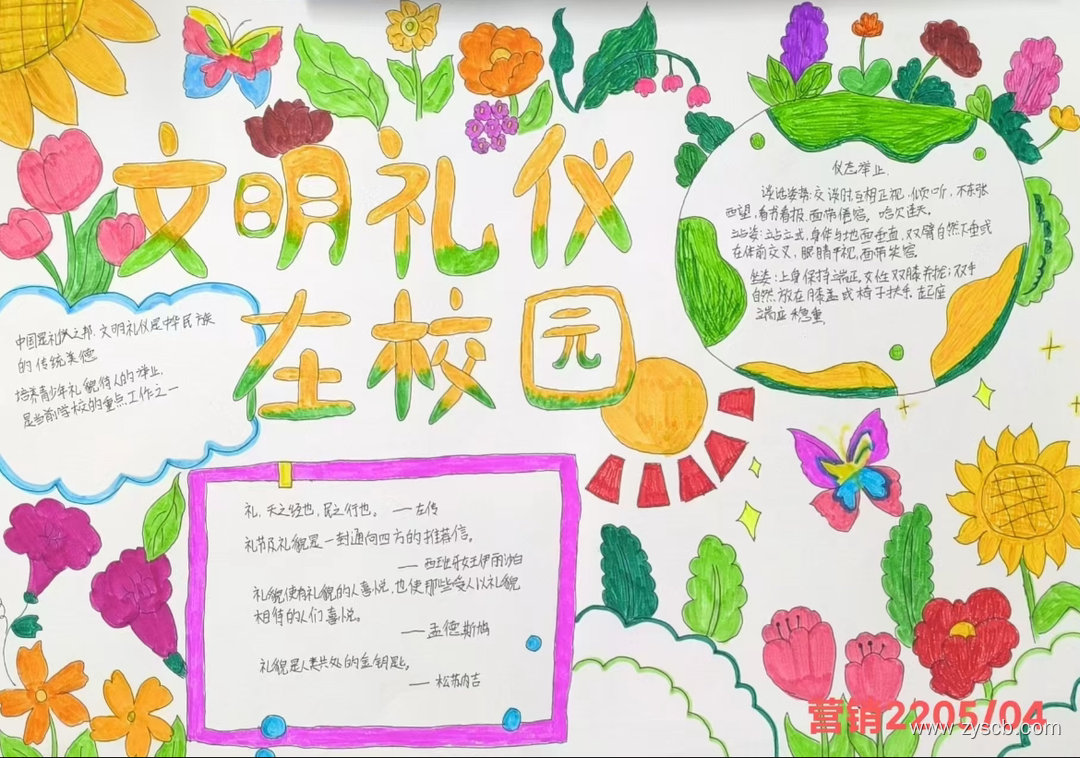 文明礼仪
在校园
中国是礼仪之邦.文明礼仪是中华民族
的传统美德
培养青少年礼貌待人的举止.
是当前学校的重点工作之一
仪态举止.
谈话姿势:交谈时互相正视.倾听.不东张
西望.看书看报.面带倦容.哈欠连天.
站姿:站立式,身体与地面垂直.双臂自然下垂或
在体前交叉,眼睛平视,面带笑容
坐姿:上身保持端正.女性双膝并拢;双手
自然放在膝盖或椅子扶手.起座
端庄稳重
礼,天之经也,民之行也。——左传
礼节及礼貌是一封通向四方的推荐信。
——西班牙女王伊丽沙白
礼貌使有礼貌的人喜悦.也使那些受人以礼貌
相待的人们喜悦。
——孟德斯鸠
礼貌是人类共处的金钥匙。
——松苏内吉
营销2205/04
www.zyscb.com